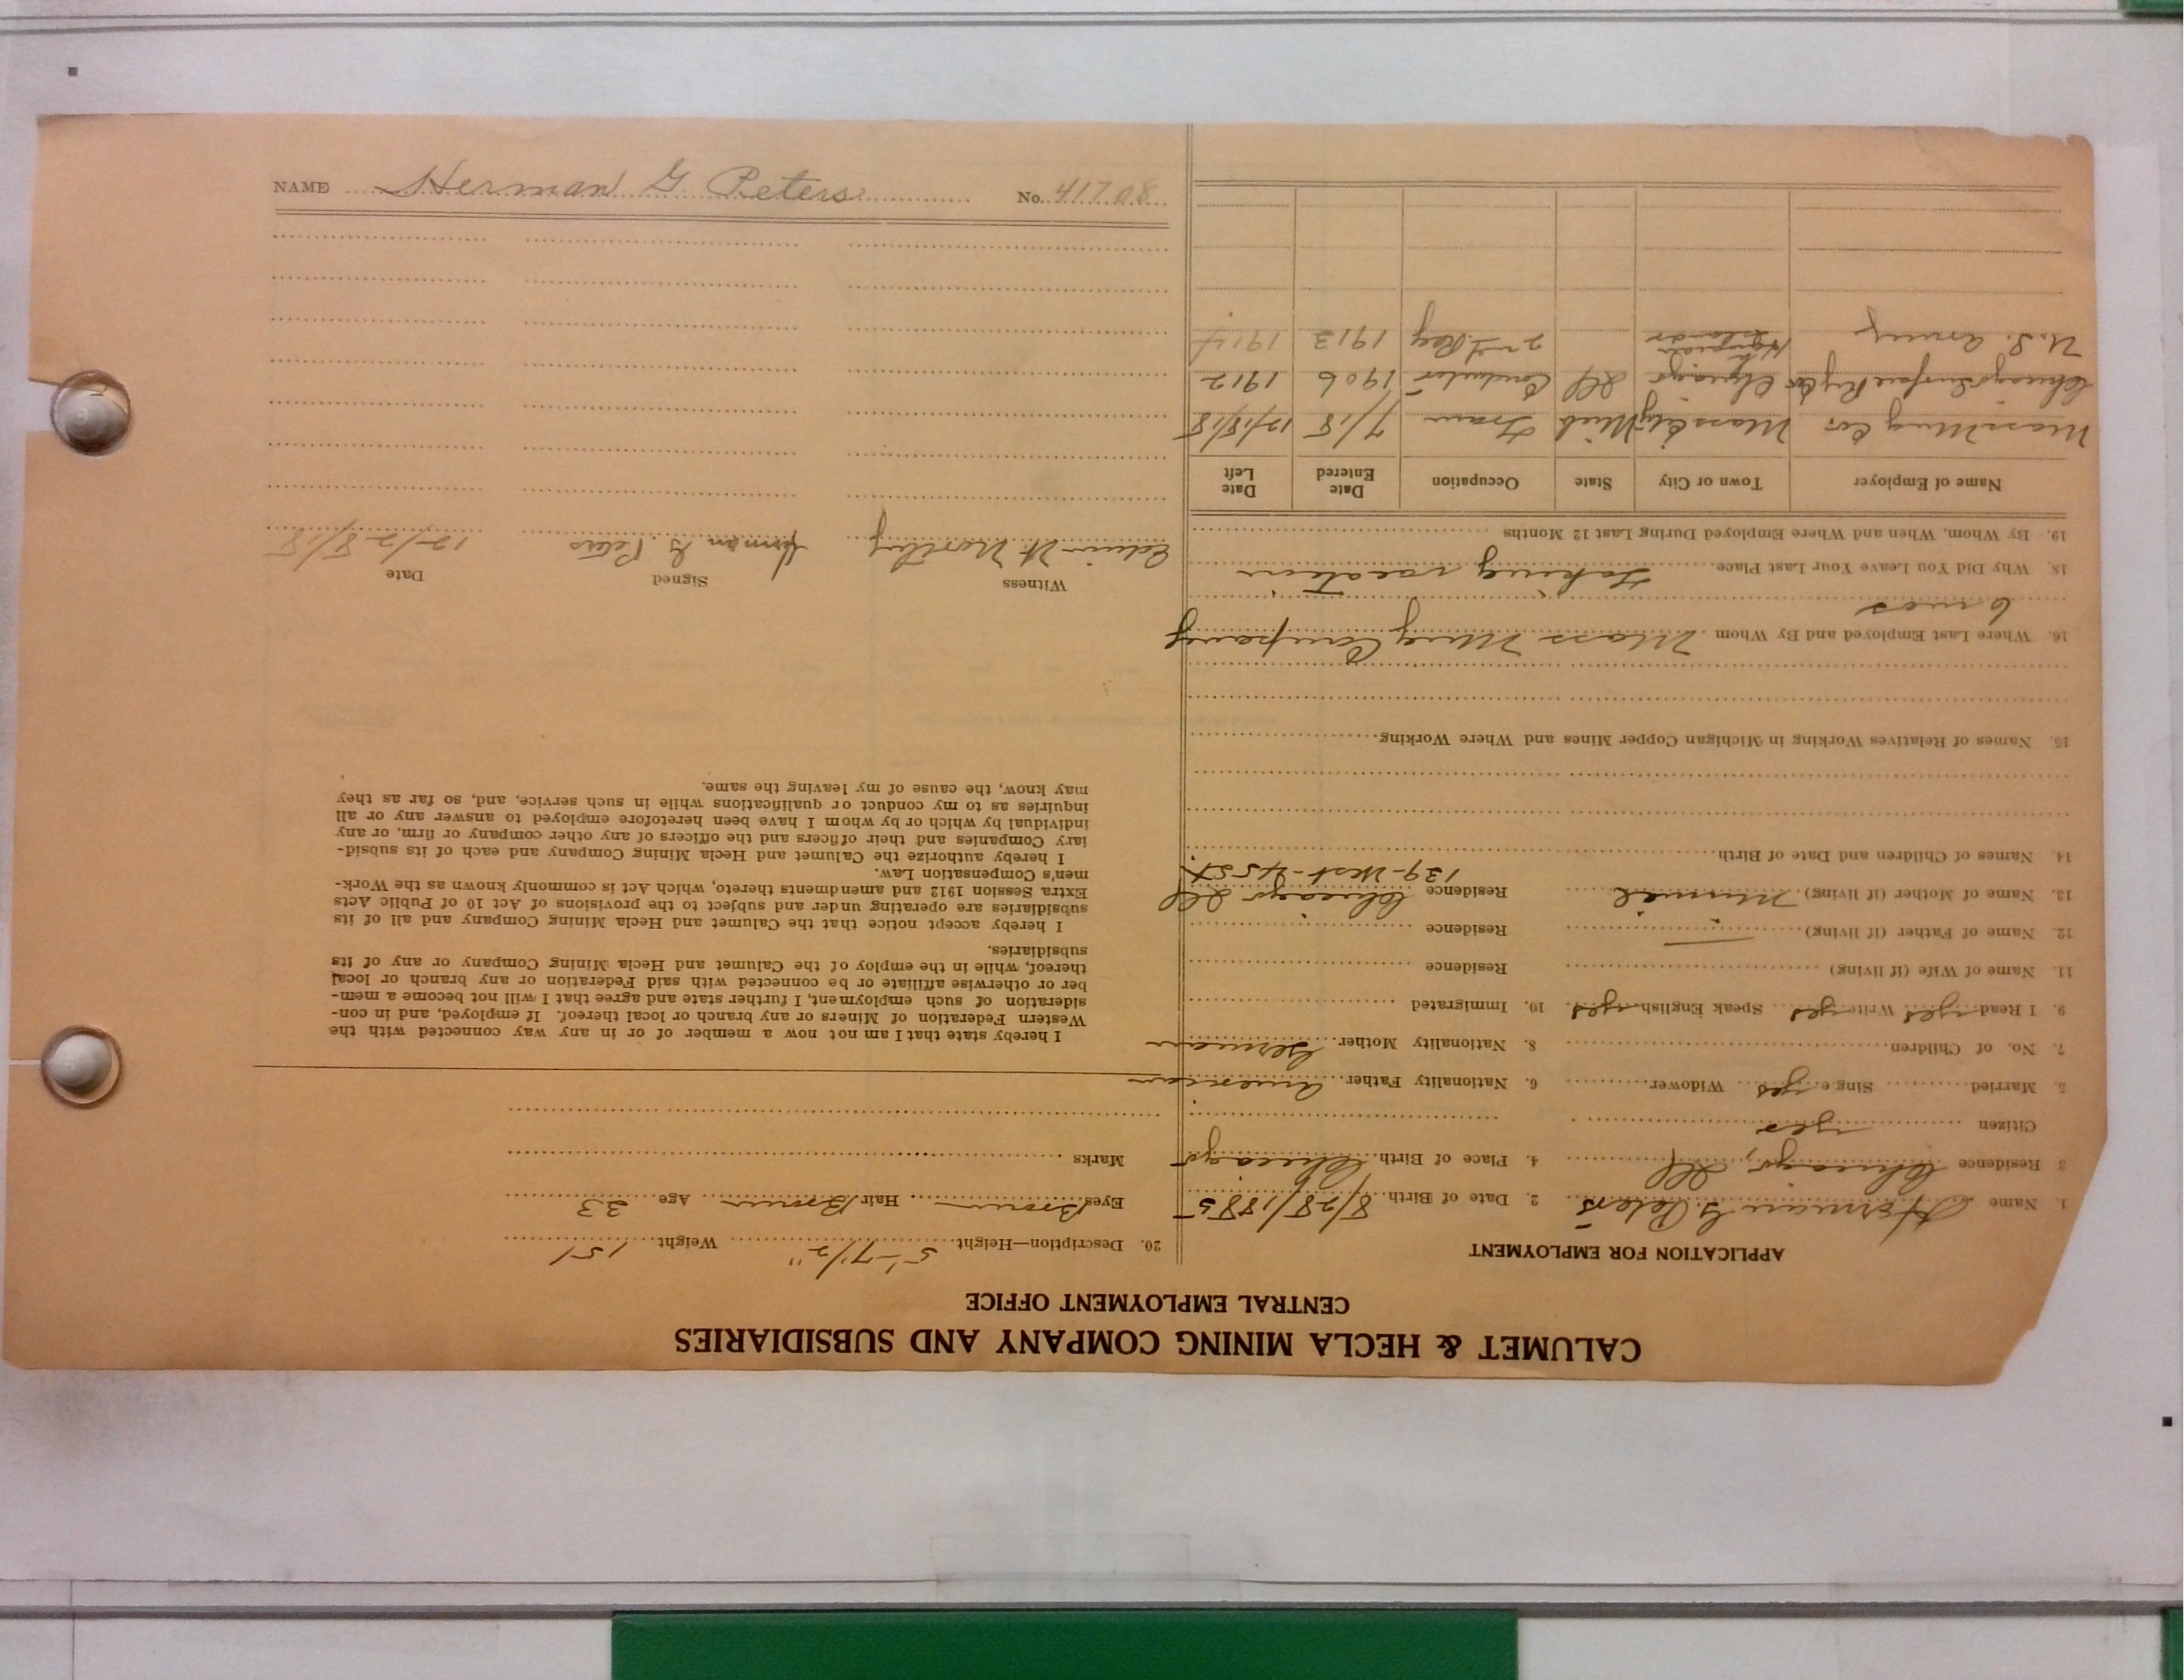 CALUMET & HECLA MINING COMPANY AND SUBSIDIARIES
CENTRAL EMPLOYMENT OFFICE
APPLICATION FOR EMPLOYMENT
1. Name Herman G. Peters 2. Date of Birth 8/28/1885
3 Residence Chicago, Ill 4. Place of Birth Chicago
Citizen yes
5. Married Single yes Widower 6. Nationality Father American
7. No. of Children 8. Nationality Mother German
9. I Read yes Write yes Speak English yes 10. Immigrated
11. Name of Wife (if living) Residence
12. Name of Father (if living) Residence
13. Name of Mother (if living) Minnie Residence Chicago Ill
139-West-45 St.
14. Names of Children and Date of Birth
15. Names of Relatives Working in Michigan Copper Mines and Where Working
16. Where Last Employed and By Whom Mass Mng Company
6 mos
18. Why Did You Leave Your Last Place Taking vacation
19. By Whom, When and Where Employed During Last 12 Months
Name of Employer Town or City State Occupation Date Entered Date Left
Mass Mng Co Mass City Mich Tram 7/18 12/18/18
Chicago Surface Ry Co Chicago Ill Conductor 1906 1912
U.S. Army Hawaiian Islands 2nd Reg 1913 1914
20. Description—Height 5'-7 1/2" Weight 151
Eyes Brown Hair Brown Age 33
Marks
I hereby state that I am not now a member of or in any way connected with the
Western Federation of Miners or any branch or local thereof. If employed, and in con-
sideration of such employment, I further state and agree that I will not become a mem-
ber or otherwise affiliate or be connected with said Federation or any branch or local
thereof, while in the employ of the Calumet and Hecla Mining Company or any of its
subsidiaries.
I hereby accept notice that the Calumet and Hecla Mining Company and all of its
subsidiaries are operating under and subject to the provisions of Act 10 of Public Acts
Extra Session 1912 and amendments thereto, which Act is commonly known as the Work-
men's Compensation Law.
I hereby authorize the Calumet and Hecla Mining Company and each of its subsid-
iary Companies and their officers and the officers of any other company or firm, or any
individual by which or by whom I have been heretofore employed to answer any or all
inquiries as to my conduct or qualifications while in such service, and, so far as they
may know, the cause of my leaving the same.
Witness Signed Date
Edwin W. Herman G. Peters 12/28/18
NAME Herman G. Peters No. 41708